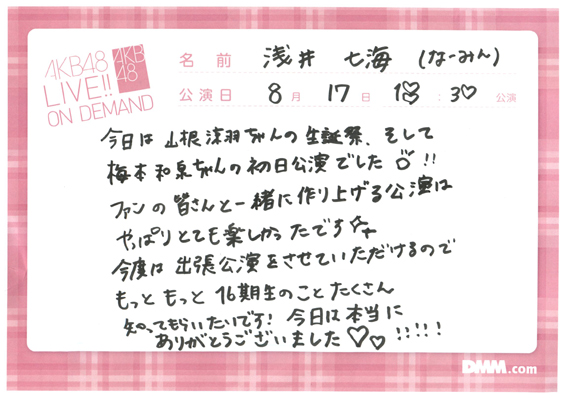 AKB48
LIVE!!
ON DEMAND
AKB
48
名前 浅井 七海 (なーみん)
公演日 8月 17日 18:30 公演
今日は 山根涼羽ちゃんの生誕祭、そして
梅本和泉ちゃんの初日公演でした!!
ファンの皆さんと一緒に作り上げる公演は
やっぱりとても楽しかったです☆
今度は 出張公演をさせていただけるので
もっと もっと 16期生のこと たくさん
知ってもらいたいです! 今日は本当に
ありがとうございました♡♡!!!!!
DMM.com